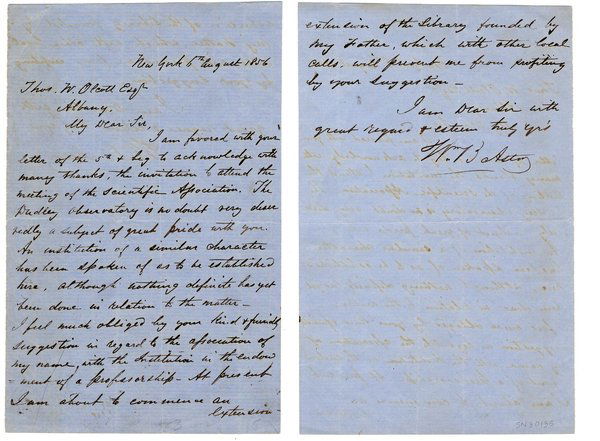 New York 6th August 1856
Thos. W. Olcott Esqr
Albany.
My Dear Sir,
I am favored with your
letter of the 5th & beg to acknowledge with
many thanks, the invitation to attend the
meeting of the Scientific Association. The
Dudley Observatory is no doubt very deser
vedly a subject of great pride with you.
An institution of a similar character
has been spoken of as to be established
here, although nothing definite has yet
been done in relation to the matter—
I feel much obliged by your kind & friendly
suggestion in regard to the association of
my name, with the Institution in the endow
-ment of a professorship— At present
I am about to commence an
extension—
extension of the Library founded by
my Father, which with other local
calls, will prevent me from profiting
by your suggestion—
I am Dear Sir with
great regard & esteem truly yrs
Wm B Astor
SN30135